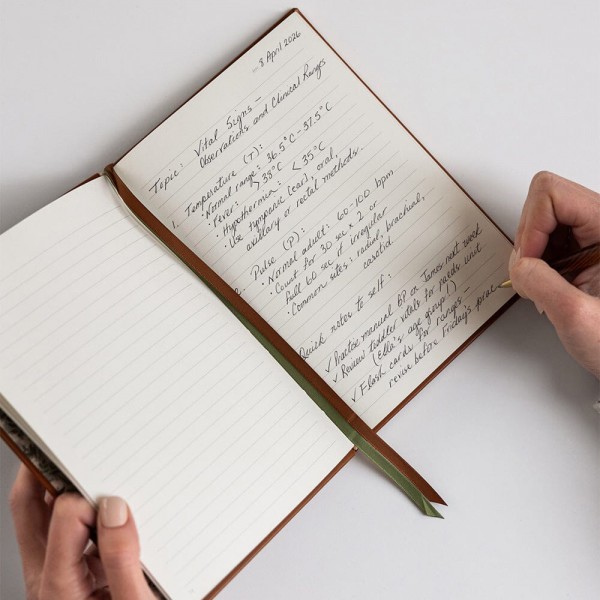 - 8 April 2026
Topic: Vital Signs -
Observations and Clinical Ranges
1. Temperature (T):
• Normal range: 36.5°C - 37.5°C
• Fever: > 38°C
• Hypothermia: < 35°C
• Use tympanic (ear), oral,
axillary or rectal methods.
2. Pulse (P):
• Normal adult: 60-100 bpm
• Count for 30 sec x 2 or
full 60 sec if irregular
• Common sites: radial, brachial,
carotid
Quick notes to self:
✓ Practise manual BP on James next week
✓ Review toddler vitals for paeds unit
(Ella's age group!)
✓ Flash cards for ranges -
revise before Friday's prac